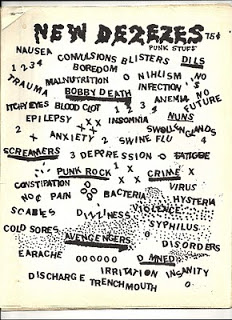 NEW DEZEZES 75¢
PUNK STUFF
NAUSEA CONVULSIONS BLISTERS DILS
1 2 3 4 BOREDOM
TRAUMA MALNUTRITION 0 NIHLISM NO
BOBBY DEATH INFECTION NO
ITCHY EYES BLOOD CLOT 1 2 3 ANEMIA FUTURE
EPILEPSY X X X INSOMNIA NUNS
2 X ANXIETY 2 SWINE FLU SWOLLEN GLANDS 4
SCREAMERS 3 DEPRESSION 0 FATIGUE
PUNK ROCK 1 X CRIME X
CONSTIPATION X X VIRUS
NO ¢ PAIN BACTERIA HYSTERIA
SCABIES DIZZINESS VIOLENCE
COLD SORES SYPHILUS
AVENGERS 0 DISORDERS
EARACHE OOOOOO DMNED
IRRITATION INSANITY
DISCHARGE TRENCHMOUTH 0